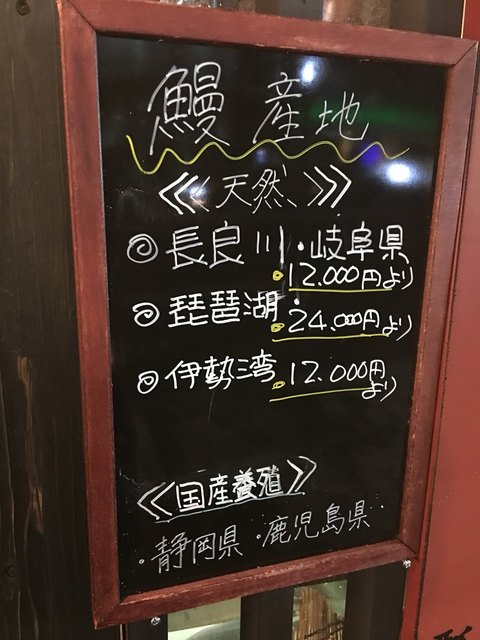 鰻 産地
≪天然≫
◎長良川・岐阜県
・12.000円より
◎琵琶湖・
・24.000円より
◎伊勢湾
・12.000円
より
<国産養殖>
・静岡県・鹿児島県